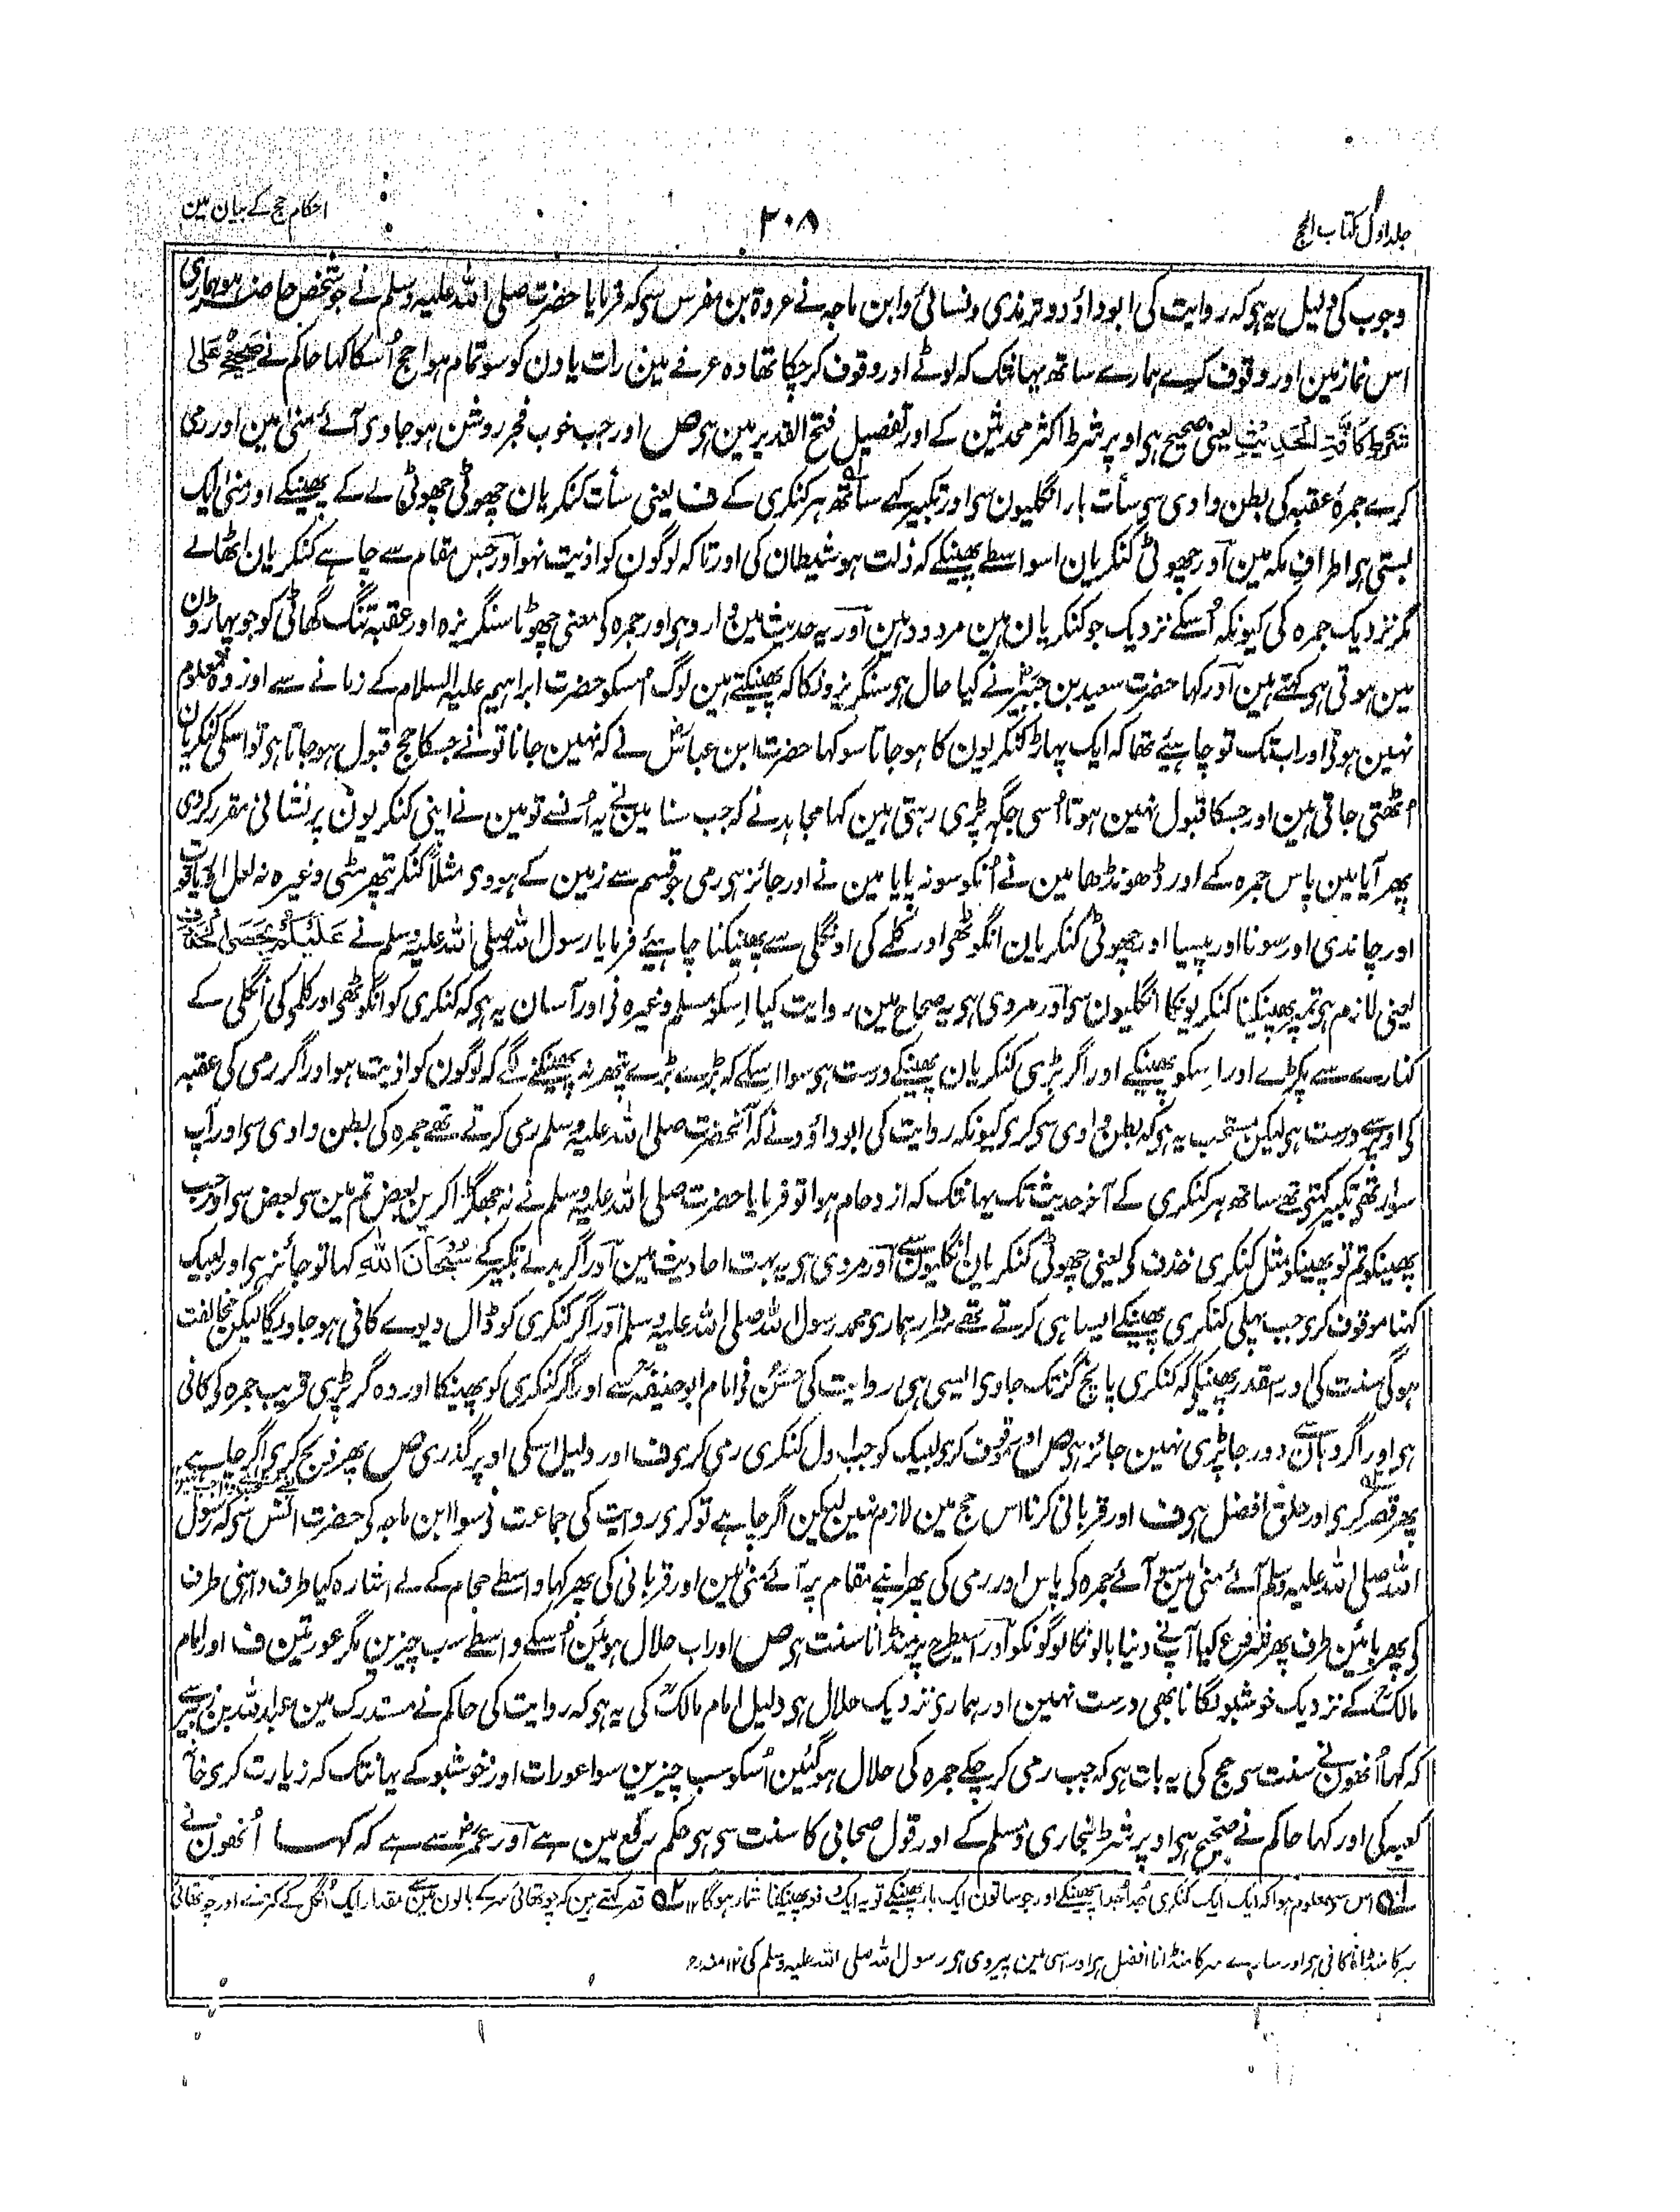 جلد اول کتاب الحج
۳۰۸
احکام حج کے بیان مین
وجوب کی دلیل یہ ہی کہ روایت کی ابو داؤد و ترمذی و نسائی و ابن ماجہ نے عروۃ بن مضرس سی کہ فرمایا حضرت صلی اللہ علیہ وسلم نے جو شخص حاضر ہو ہماری
اس نماز مین اور وقوف کرے ہمارے ساتھ یہانتک کہ لوٹے اور وقوف کر چکا تھا وہ عرفے مین رات یا دن کو سو تمام ہوا حج اُسکا کہا حاکم نے صَحِیْحٌ عَلیٰ
شَرْطِ کَافَّۃِ الْحَدِیْثِ یعنی صحیح ہی اوپر شرط اکثر محدثین کے اور تفصیل فتح القدیر مین ہی ص اور جب خوب فجر روشن ہو جاوی آئے منی مین اور رمی
کرے جمرۂ عقبہ کی بطن وادی سی سات بار انگلیون سی اور تکبیر کہے ساتھ ہر کنکری کے ف یعنی سات کنکریان چھوٹی چھوٹی لے کے پھینکے اور منیٰ ایک
بستی ہی اطراف مکہ مین اور چھوٹی کنکریان اسواسطے پھینکے کہ ذلت ہو شیطان کی اور تاکہ لوگون کو اذیت نہو اور جس مقام سے چاہے کنکریان اٹھالے
مگر نزدیک جمرہ کی کیونکہ اُسکے نزدیک جو کنکریان ہین مردود ہین اور یہ حدیث مین وارد ہی اور جمرہ کی معنی چھوٹا سنگریزہ اور عقبہ تنگ گھاٹی کو جو پہاڑون
مین ہوتی ہی کہتے ہین اور کہا حضرت سعید بن جبیرؓ نے کیا حال ہی سنگریزونکا کہ پھینکتے ہین لوگ اسکو حضرت ابراہیم علیہ السلام کے زمانے سے اور وہ معلوم
نہین ہوتی اور اب تک تو چاہیئے تھا کہ ایک پہاڑ کنکریون کا ہو جاتا سو کہا حضرت ابن عباسؓ نے کہ نہین جانا تو نے جسکا حج قبول ہو جاتا ہی تو اسکی کنکریان
اُٹھتی جاتی ہین اور جسکا قبول نہین ہوتا اُسی جگہ پڑی رہتی ہین کہا مجاہد نے کہ جب سنا مین نے یہ اُنسے تو مین نے اپنی کنکریون پر نشانی مقرر کر دی
پھر آیا مین پاس جمرہ کے اور ڈھونڈھا مین نے اُنکو سو نہ پایا مین نے اور جائز ہی رمی جو قسم سے زمین کے ہووی مثلاً کنکر پتھر مٹی وغیرہ نہ لعل اور یاقوت
اور چاندی اور سونا اور پیسا اور چھوٹی کنکریان انگوٹھی اور کلمے کی اونگلی سے پھینکنا چاہیئے فرمایا رسول اللہ صلی اللہ علیہ وسلم نے عَلَیْکُمْ بِحَصَی الْخَذْفِ
یعنی لازم ہی تمپر پھینکنا کنکریونکا انگلیون سی اور مروی ہی یہ صحاح مین روایت کیا اِسکو مسلم وغیرہ نی اور آسان یہ ہی کہ کنکری کو انگوٹھی اور کلمی کی انگلی کے
کنارے سے پکڑے اور اِسکو پھینکے اور اگر بڑی کنکریان پھینکے درست ہی سوا اسکے کہ بڑے بڑے پتھر نہ پھینکنے لگے کہ لوگون کو اذیت ہو اور اگر رمی کی عقبہ
کی اوپر سے درست ہی لیکن مستحب یہ ہی کہ بطن وادی سی کری کیونکہ روایت کی ابو داؤد نے کہ آنحضرت صلی اللہ علیہ وسلم رمی کرتے تھے جمرہ کی بطن وادی سی اور آپ
سوار تھی تکبیر کہتی تھے ساتھ ہر کنکری کے آخر حدیث تک یہانتک کہ ازدحام ہوا تو فرمایا حضرت صلی اللہ علیہ وسلم نے نہ جھگڑا کرین بعض تم مین سی بعض سی اور جب
پھینکو تم تو پھینکو مثل کنکری خذف کی یعنی چھوٹی کنکریان انگلیون سے اور مروی ہی یہ بہت احادیث مین اور اگر بدلے تکبیر کے سُبْحَانَ اللہِ کہا تو جائز ہی اور لبیک
کہنا موقوف کری جب پہلی کنکری پھینکے ایسا ہی کرتے تھے سردار ہماری محمد رسول اللہ صلی اللہ علیہ وسلم اور اگر کنکری کو ڈال دیوے کافی ہو جاویگا لیکن مخالفت
ہوگی سنت کی اور اسقدر پھینکے کہ کنکری پانچ گز تک جاوی ایسی ہی روایت کی حسنؒ نی امام ابو حنیفہؒ سے اور اگر کنکری کو پھینکا اور وہ گر پڑی قریب جمرہ کی کافی
ہی اور اگر وہان سے دور جا پڑی نہین جائز ہی ص اور موقوف کری لبیک کو جب اول کنکری رمی کری ف اور دلیل اسکی اوپر گذری ص پھر ذبح کری اگر چاہے
پھر قصر کری اور حلق افضل ہی ف اور قربانی کرنا اس حج مین لازم نہین لیکن اگر چاہے تو کری روایت کی جماعت نی سوا ابن ماجہ کی حضرت انسؓ سی کہ رسول
اللہ صلی اللہ علیہ وسلم آئے منی مین پھر آئے جمرہ کی پاس اور رمی کی پھر اپنے مقام پر آئے منیٰ مین اور قربانی کی پھر کہا واسطے حجام کے لے اشارہ کیا طرف داہنی طرف
کی پھر بائین طرف پھر شروع کیا آپنے دینا بالونکا لوگونکو اور اسیطرح پر منڈانا سنت ہی ص اور اب حلال ہوئین اُسکے واسطے سب چیزین مگر عورتین ف اور امام
مالکؒ کے نزدیک خوشبو لگانا بھی درست نہین اور ہماری نزدیک حلال ہی دلیل امام مالکؒ کی یہ ہی کہ روایت کی حاکم نے مستدرک مین عبد اللہ بن زبیر سے
کہ کہا اُنھون نے سنت سی حج کی یہ بات ہی کہ جب رمی کر چکے جمرہ کی حلال ہوگئین اُسکو سب چیزین سوا عورات اور خوشبو کے یہانتک کہ زیارت کری خانہ
کعبہ کی اور کہا حاکم نے صحیح ہی اوپر شرط بخاری و مسلم کے اور قول صحابی کا سنت سی ہی حکم رفع مین ہے اور عمرؓ سے ہے کہ کہا اُنھون نے
۱؎ اس سی معلوم ہوا کہ ایک ایک کنکری جُدا جُدا پھینکے اور جو ساتون ایک بار پھینکے تو یہ ایک دفعہ پھینکنا شمار ہوگا ۱۲ ۲؎ قصر کہتے ہین کہ چوتھائی سر کے بالون مین سے مقدار ایک انگل کے کترنے اور چوتھائی
سر کا منڈانا کافی ہی اور سارے سر کا منڈانا افضل ہی اور اسی مین پیروی ہی رسول اللہ صلی اللہ علیہ وسلم کی ۱۲ منہ